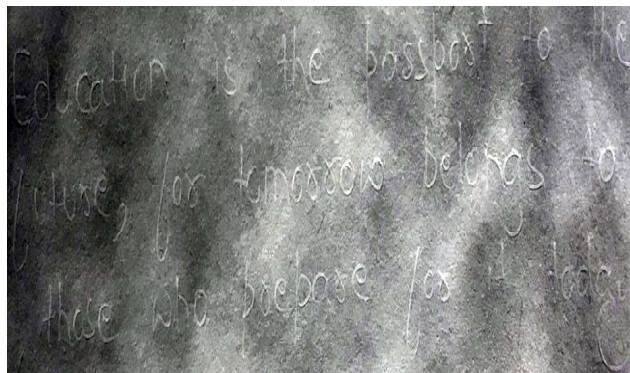 Education is the passport to the
future, for tomorrow belongs to
those who prepare for it today